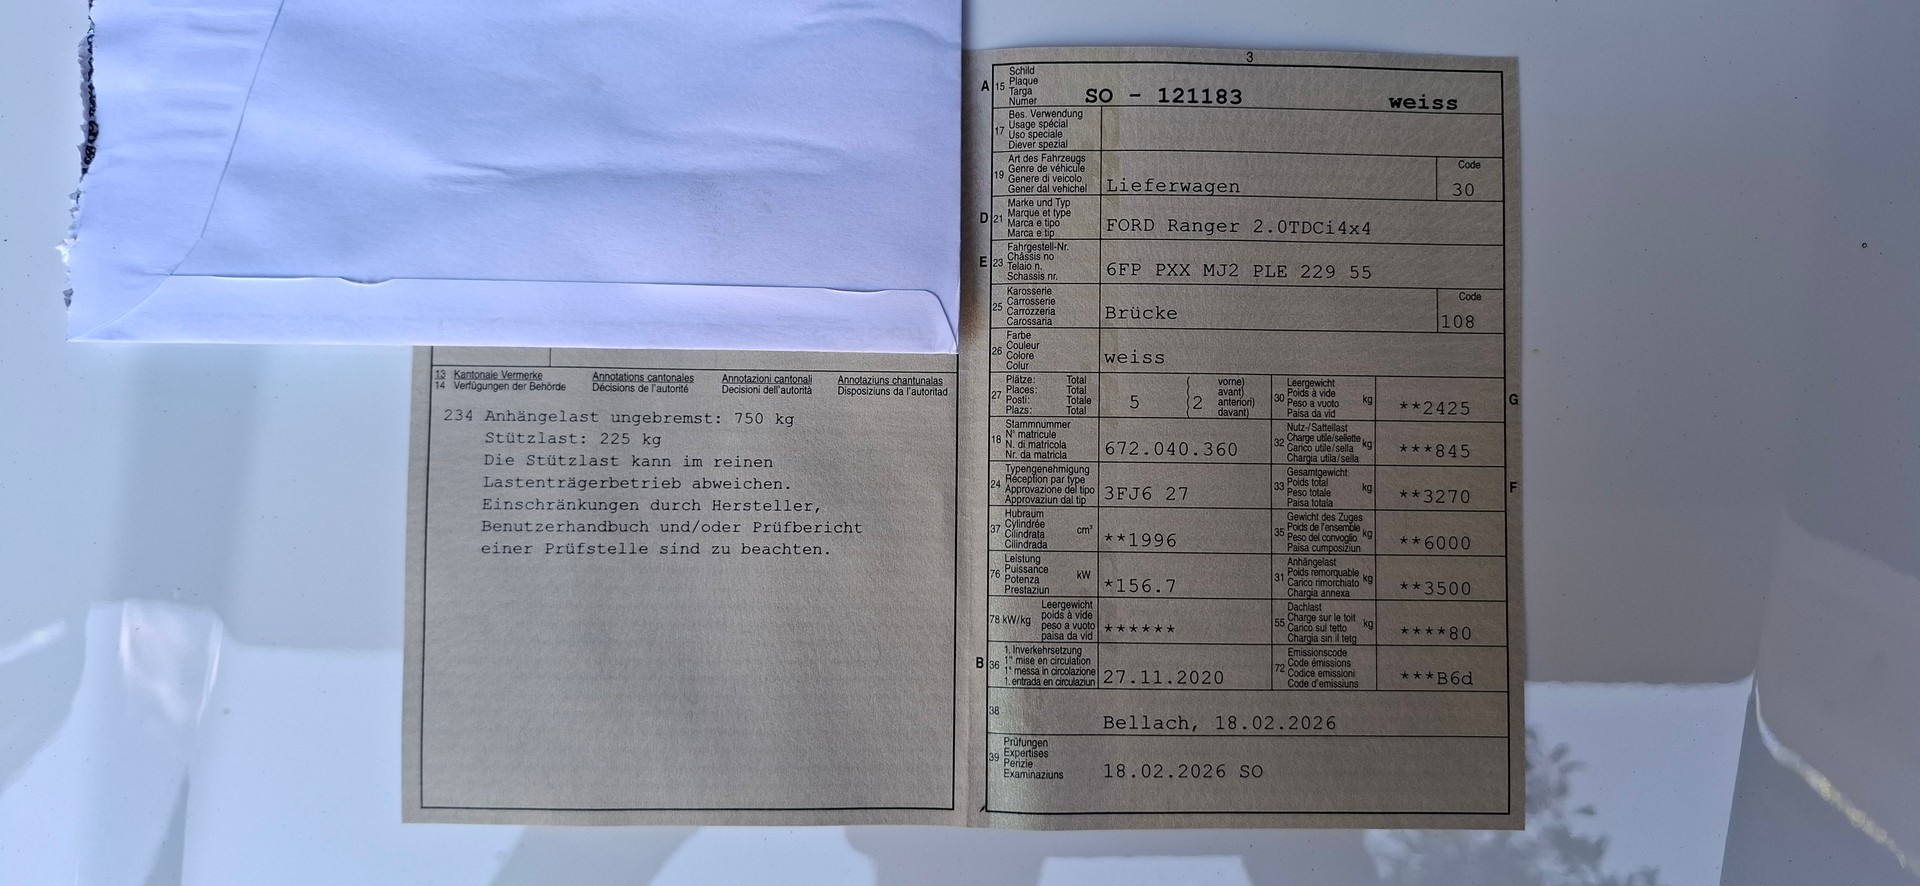 13 Kantonale Vermerke Annotations cantonales Annotazioni cantonali Annotaziuns chantunalas
14 Verfügungen der Behörde Décisions de l'autorité Decisioni dell'autorità Disposiziuns da l'autoritad
234 Anhängelast ungebremst: 750 kg
Stützlast: 225 kg
Die Stützlast kann im reinen
Lastenträgerbetrieb abweichen.
Einschränkungen durch Hersteller,
Benutzerhandbuch und/oder Prüfbericht
einer Prüfstelle sind zu beachten.
3
A 15 Schild
Plaque
Targa
Numer
SO - 121183 weiss
17 Bes. Verwendung
Usage spécial
Uso speciale
Diever spezial
19 Art des Fahrzeugs
Genre de véhicule
Genere di veicolo
Gener dal vehichel
Lieferwagen
Code
30
D 21 Marke und Typ
Marque et type
Marca e tipo
Marca e tip
FORD Ranger 2.0TDCi4x4
E 23 Fahrgestell-Nr.
Châssis no
Telaio n.
Schassis nr.
6FP PXX MJ2 PLE 229 55
25 Karosserie
Carrosserie
Carrozzeria
Carossaria
Brücke
Code
108
26 Farbe
Couleur
Colore
Colur
weiss
27 Plätze: Total
Places: Total
Posti: Totale
Plazs: Total
5
( vorne)
avant)
anteriori)
( 2 davant)
30 Leergewicht
Poids à vide
Peso a vuoto
Paisa da vid
kg
**2425
G
18 Stammnummer
N° matricule
N. di matricola
Nr. da matricla
672.040.360
32 Nutz-/Sattellast
Charge utile/sellette
Carico utile/sella
Chargia utila/sella
kg
***845
24 Typengenehmigung
Réception par type
Approvazione del tipo
Approvaziun dal tip
3FJ6 27
33 Gesamtgewicht
Poids total
Peso totale
Paisa totala
kg
**3270
F
37 Hubraum
Cylindrée
Cilindrata
Cilindrada
cm³
**1996
35 Gewicht des Zuges
Poids de l'ensemble
Peso del convoglio
Paisa cumposiziun
kg
**6000
76 Leistung
Puissance
Potenza
Prestaziun
kW
*156.7
31 Anhängelast
Poids remorquable
Carico rimorchiato
Chargia annexa
kg
**3500
78 kW/kg
Leergewicht
poids à vide
peso a vuoto
paisa da vid
******
55 Dachlast
Charge sur le toit
Carico sul tetto
Chargia sin il tetg
kg
****80
B 36 1. Inverkehrsetzung
1re mise en circulation
1a messa in circolazione
1. entrada en circulaziun
27.11.2020
72 Emissionscode
Code émissions
Codice emissioni
Code d'emissiuns
***B6d
38
Bellach, 18.02.2026
39 Prüfungen
Expertises
Perizie
Examinaziuns
18.02.2026 SO